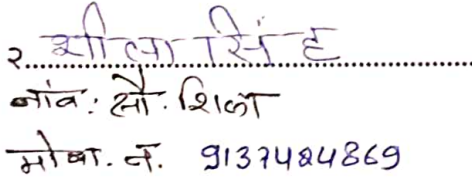 २. शीला सिंह
नांव: सौ. शिला
मोबा. नं. 9137484869